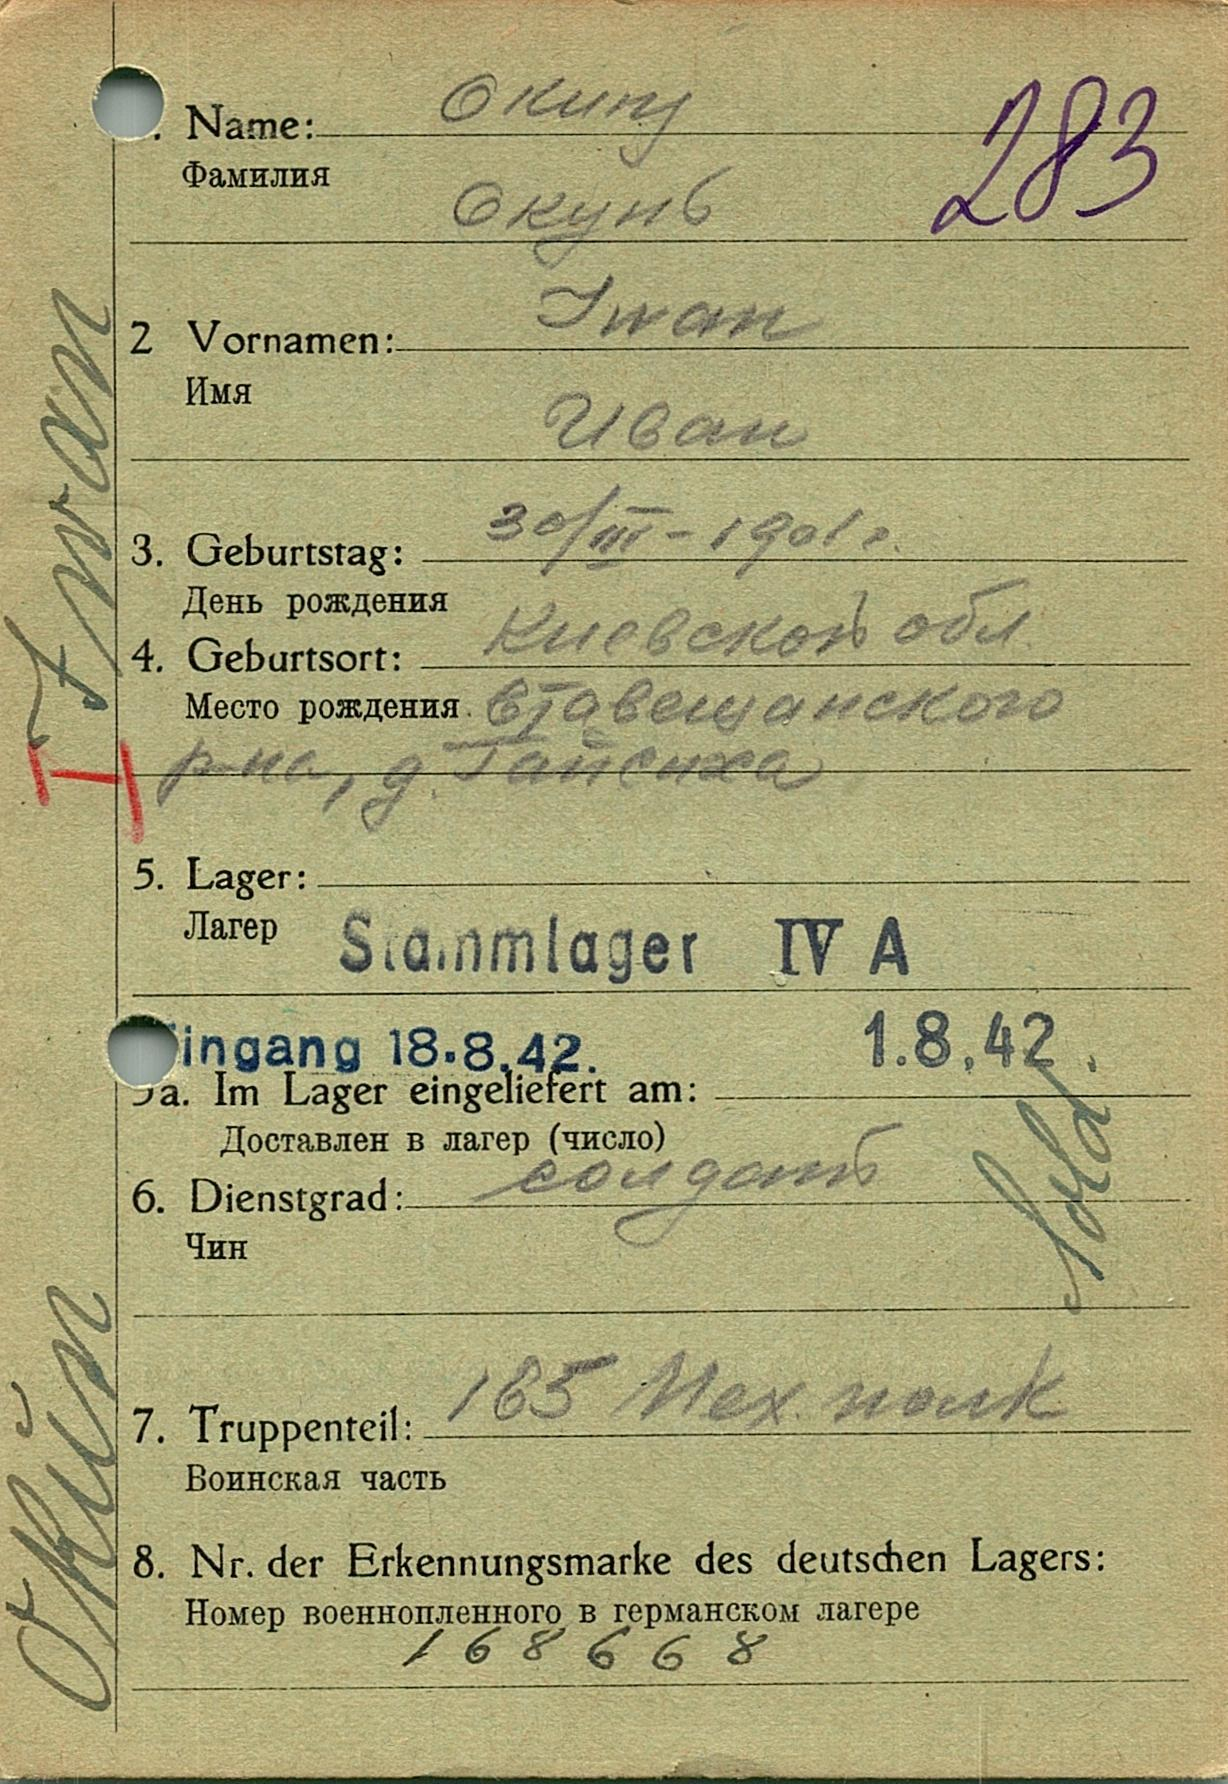 . Name: Окинь
283
Фамилия
Окунь
2 Vornamen: Iwan
Имя
Иван
3. Geburtstag: 30/III-1901 г.
День рождения
4. Geburtsort: Киевской обл.
Место рождения Ставещанского
р-на, д. Гайсиха
5. Lager:
Лагер
Stammlager IV A
ingang 18.8.42. 1.8.42.
a. Im Lager eingeliefert am:
Доставлен в лагер (число)
6. Dienstgrad: солдат
Чин
Sold
7. Truppenteil: 165 Мех. полк
Воинская часть
8. Nr. der Erkennungsmarke des deutschen Lagers:
Номер военнопленного в германском лагере
168668
Okŭn Iwan